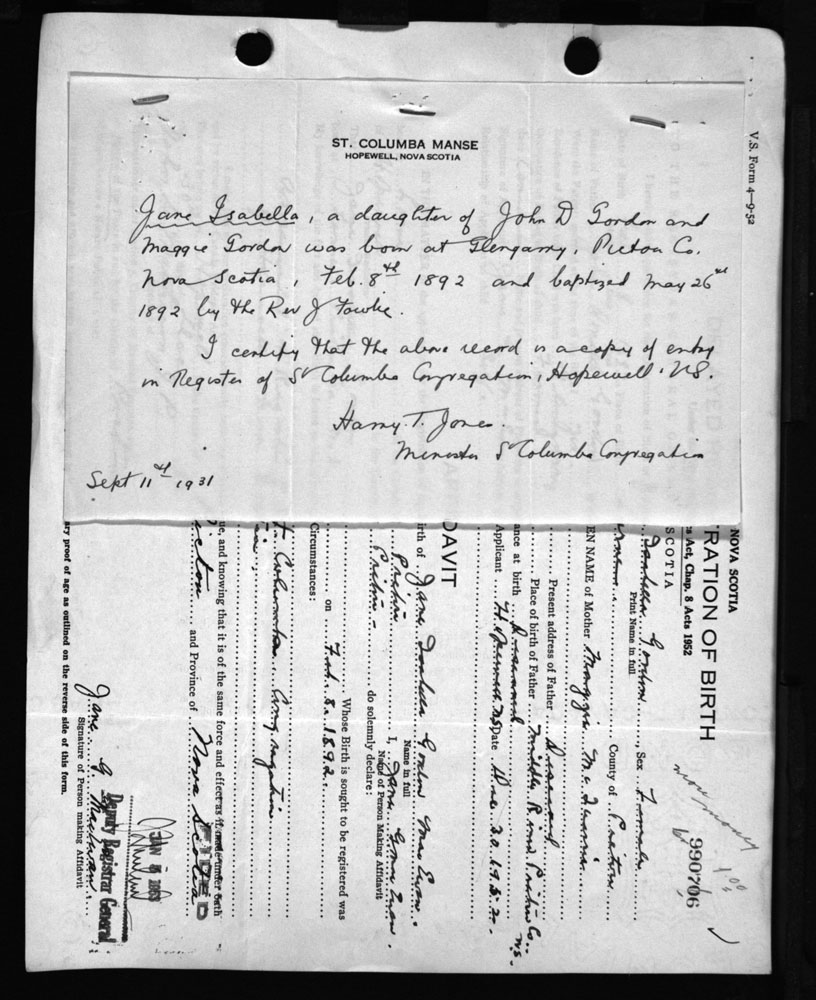 ST. COLUMBA MANSE
HOPEWELL, NOVA SCOTIA
Jane Isabella, a daughter of John D Gordon and
Maggie Gordon was born at Glengarry, Pictou Co.
Nova Scotia, Feb. 8th 1892 and baptized May 26th
1892 by the Rev J Fowlie.
I certify that the above record is a copy of entry
in Register of St Columba Congregation, Hopewell. N.S.
Harry T. Jones.
Minister St Columba Congregation
Sept 11th 1931
V.S. Form 4—9-52
NOVA SCOTIA
RATION OF BIRTH
s Act, Chap. 8 Acts 1952
SCOTIA
Isabella Gordon Sex Female
Print Name in full
County of Pictou
EN NAME of Mother Maggie
Present address of Father Deceased
Place of birth of Father Middle River Pictou Co. N.S.
ance at birth
Applicant Hopewell NS Date
DAVIT
irth of Jane Isabella Gordon MacEwen.
Name in full
Pictou I, Jane
Name of Person Making Affidavit
Pictou - do solemnly declare:
Whose Birth is sought to be registered was
on Feb. 8. 1892.
Circumstances:
St. Columba Congregation
ue, and knowing that it is of the same force and effect as if made under oath
Pictou and Province of Nova Scotia
JAN 1953
Deputy Registrar General
Jane G MacEwan.
Signature of Person making Affidavit
ry proof of age as outlined on the reverse side of this form.
more money
1.00
990706